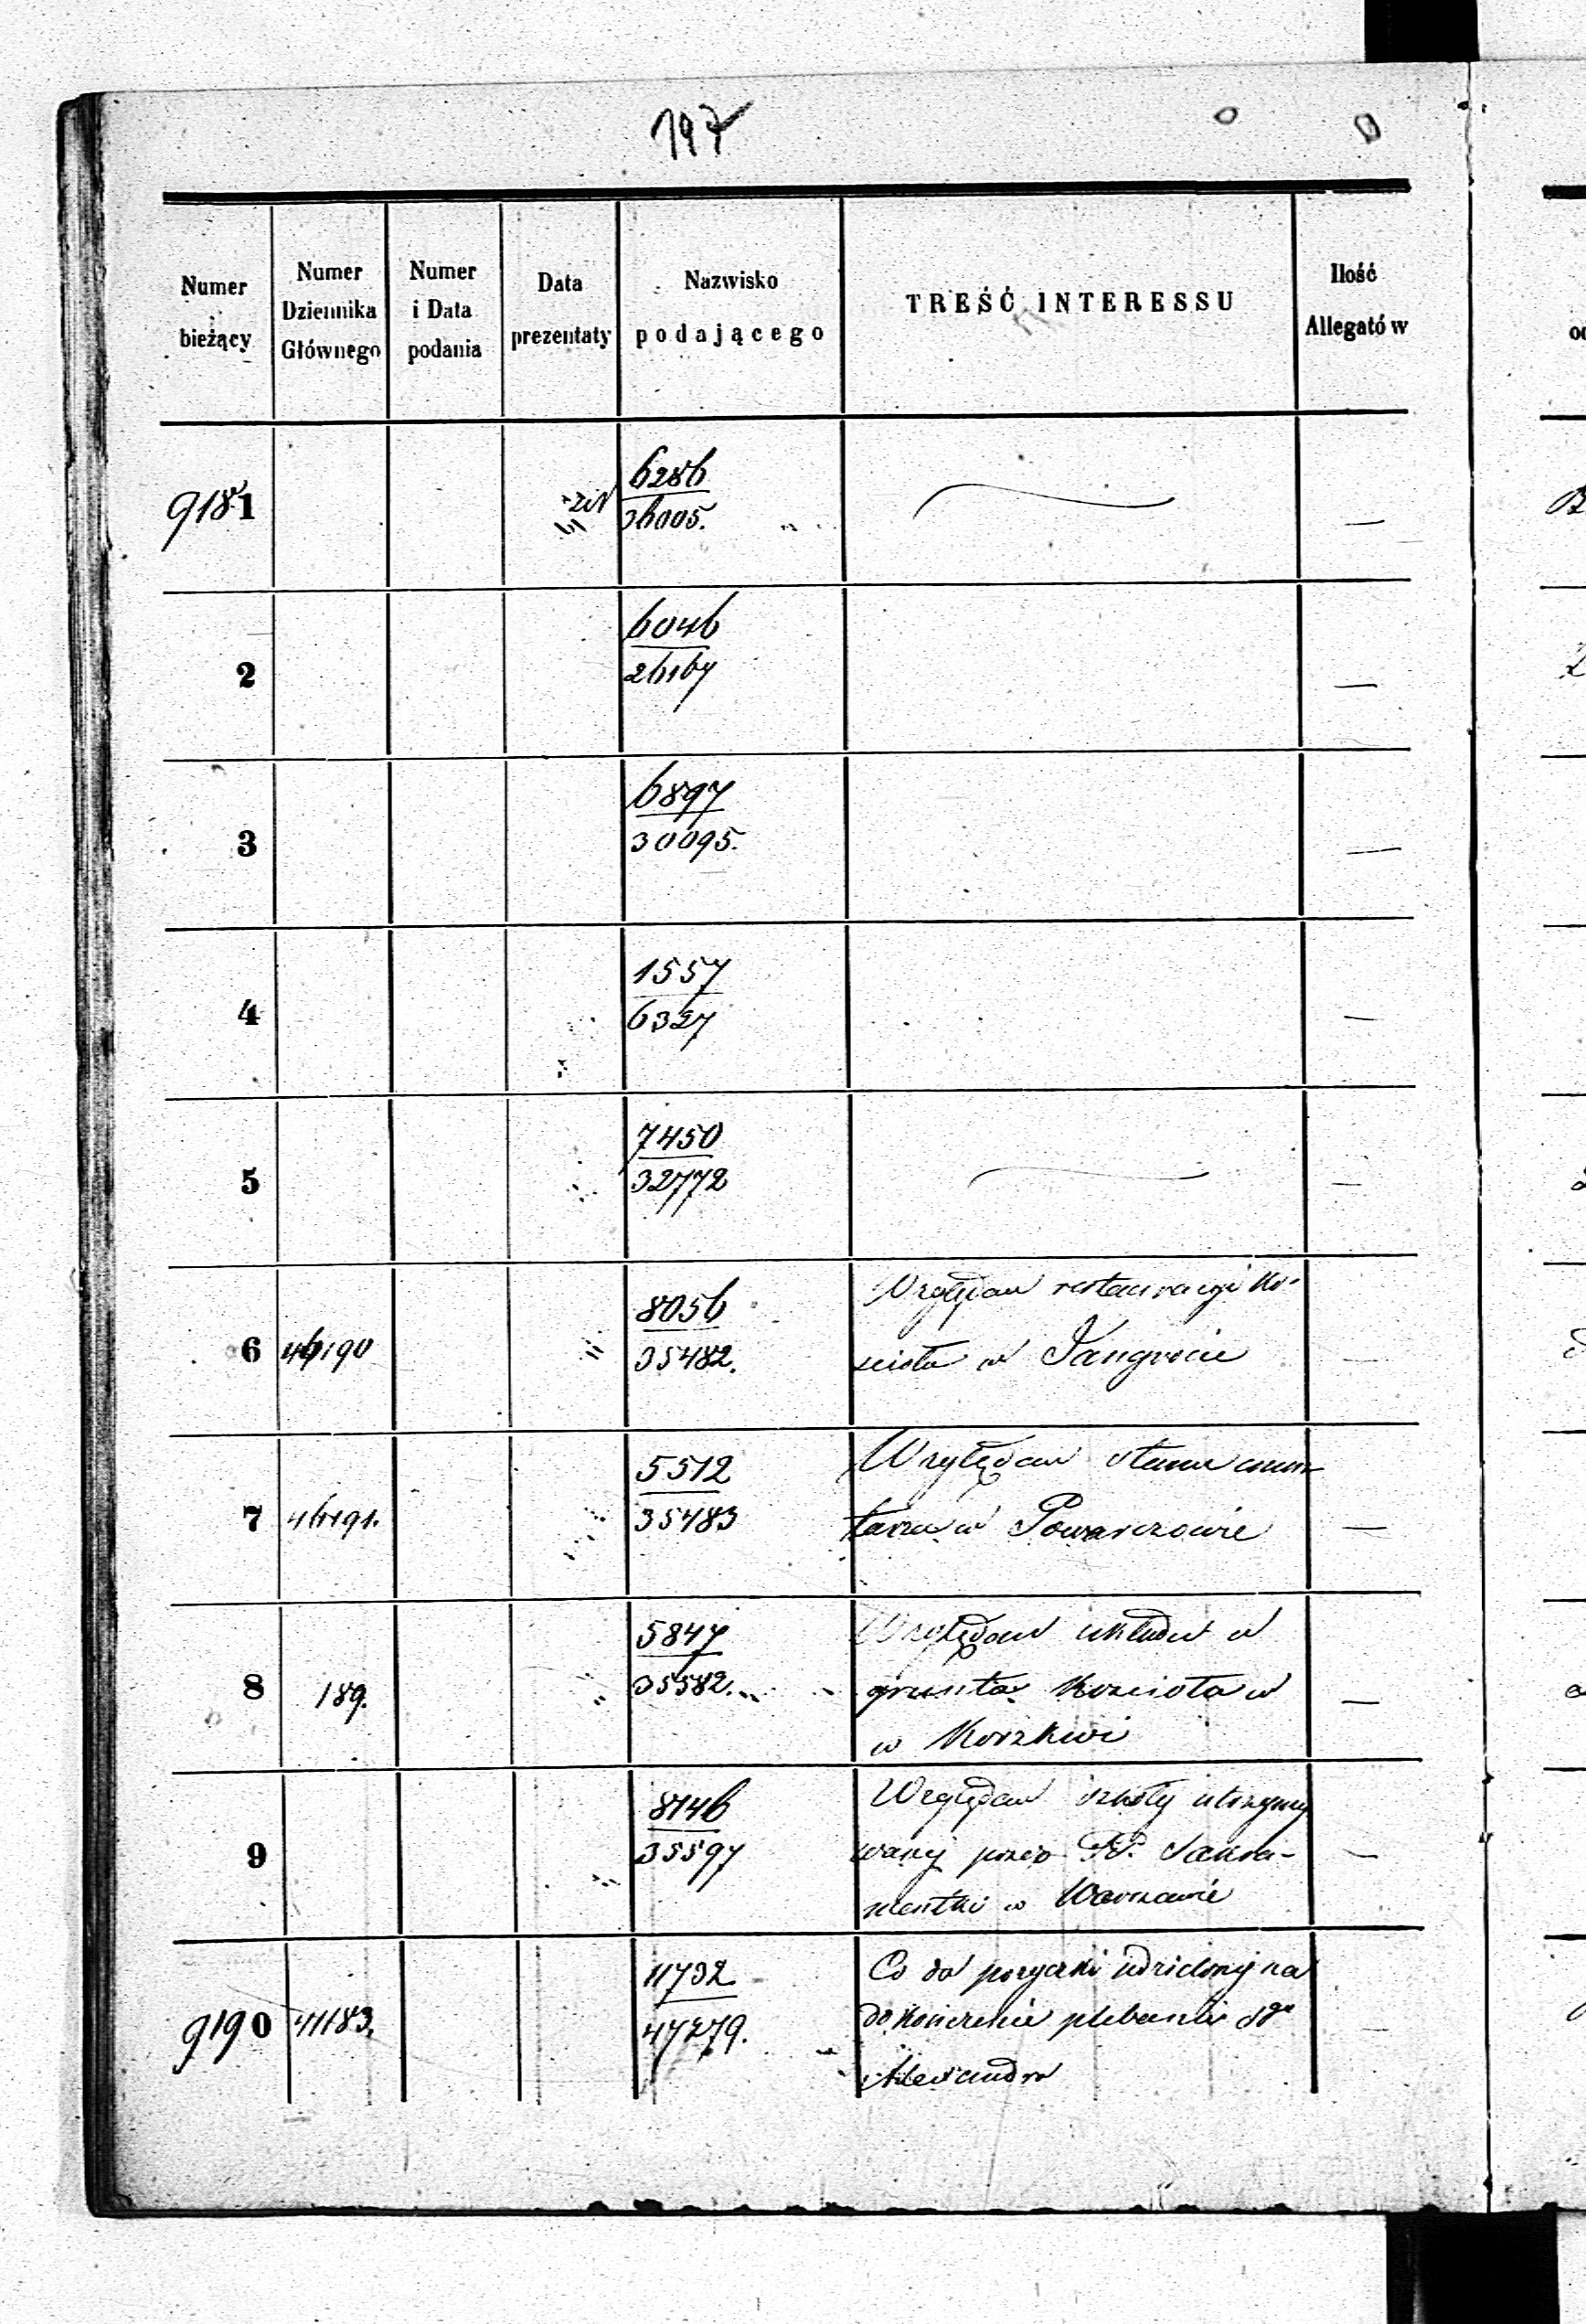 197
Numer bieżący
Numer Dziennika Głównego
Numer i Data podania
Data prezentaty
Nazwisko podającego
TREŚĆ INTERESSU
Ilość Allegatów
9181
6286
36005.
—
2
6046
26167
—
3
6897
30095.
—
4
1557
6327
—
5
7450
32772
—
6 46190
8056
35482.
Względem restauracyi Ko-
scioła w Jangrocie
7 46191.
5512
35483
Względem stanu cmen-
tarza w Powarczowie
—
8 189.
5847
35582.
Względem układu w
grunta Kościoła w
w Korzkwi
—
9
8146
35597
Względem szkoły utrzymy
wanej przez PP. Sakra-
mentki w Warszawie
—
9190 41183.
11732
47279.
Co do pożyczki udzielonej na
dokończenie plebanii Sgo
Alexandra